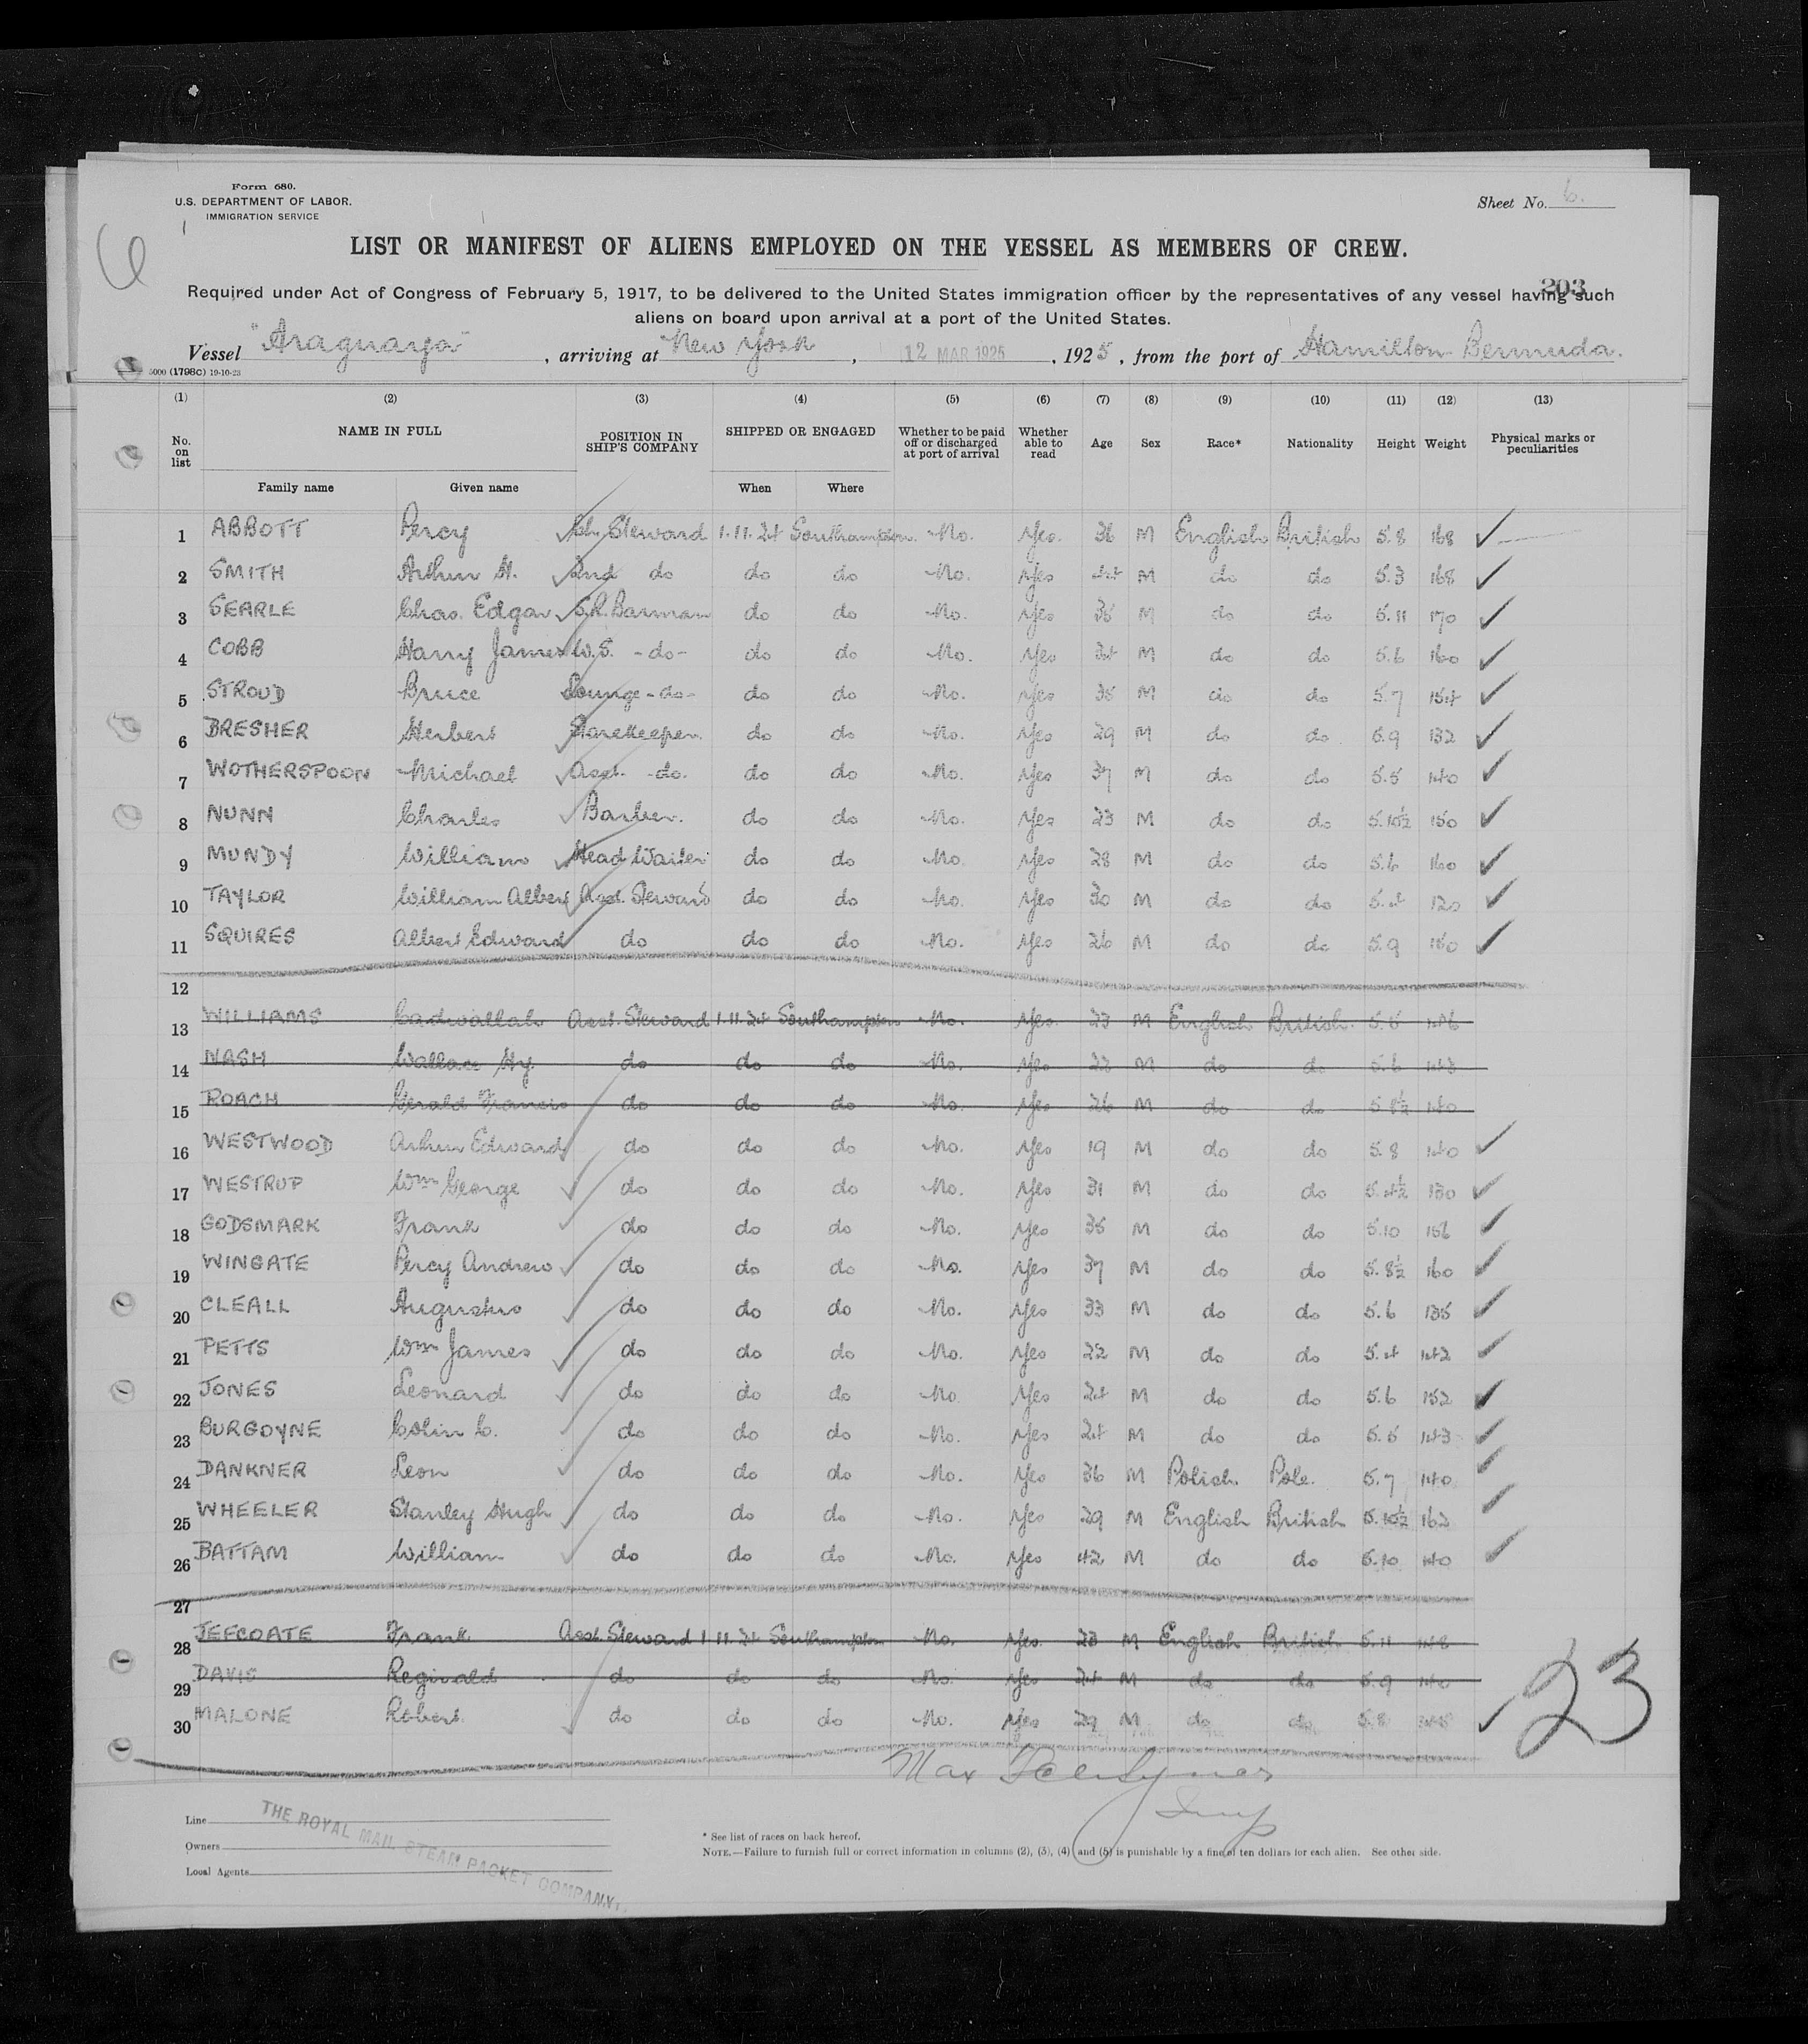 Form 680.
U.S. DEPARTMENT OF LABOR.
IMMIGRATION SERVICE
Sheet No. 6.
6
LIST OR MANIFEST OF ALIENS EMPLOYED ON THE VESSEL AS MEMBERS OF CREW.
203
Required under Act of Congress of February 5, 1917, to be delivered to the United States immigration officer by the representatives of any vessel having such
aliens on board upon arrival at a port of the United States.
Vessel "Araguaya", arriving at New York, 12 MAR 1925, 1925, from the port of Hamilton Bermuda.
5000 (1798C) 19-10-23
(1) (2) (3) (4) (5) (6) (7) (8) (9) (10) (11) (12) (13)
No. on list NAME IN FULL POSITION IN SHIP'S COMPANY SHIPPED OR ENGAGED Whether to be paid off or discharged at port of arrival Whether able to read Age Sex Race* Nationality Height Weight Physical marks or peculiarities
Family name Given name When Where
1 ABBOTT Percy Ch. Steward 1.11.24 Southampton No. Yes. 36 M English British 5.8 168
2 SMITH Arthur H. 2nd do do do No. Yes 44 M do do 5.3 168
3 SEARLE Chas. Edgar S.R. Barman do do No. Yes 35 M do do 5.11 170
4 COBB Harry James W.S. -do- do do No. Yes 34 M do do 5.6 160
5 STROUD Bruce Lounge -do- do do No. Yes 35 M do do 5.7 154
6 BRESHER Herbert Storekeeper. do do No. Yes 29 M do do 5.9 132
7 WOTHERSPOON Michael Asst. -do. do do No. Yes 37 M do do 5.5 140
8 NUNN Charles Barber. do do No. Yes 23 M do do 5.10½ 150
9 MUNDY William Head Waiter do do No. Yes 28 M do do 5.6 160
10 TAYLOR William Albert Asst. Steward do do No. Yes 30 M do do 5.4 120
11 SQUIRES Albert Edward do do do No. Yes 26 M do do 5.9 150
12
13 WILLIAMS Asst. Steward 1.11.24 Southampton No. Yes. 23 M English British. 5.5
14 NASH Wallace Hy. do do do No. Yes 22 M do do 5.6 143
15 ROACH Gerald Francis do do do No. Yes 26 M do do 5.8½ 140
16 WESTWOOD Arthur Edward do do do No. Yes 19 M do do 5.8 140
17 WESTRUP Wm George do do do No. Yes 31 M do do 5.4½ 130
18 GODSMARK Frank do do do No. Yes 35 M do do 5.10 156
19 WINGATE Percy Andrew do do do No. Yes 37 M do do 5.8½ 160
20 CLEALL Augustus do do do No. Yes 33 M do do 5.6 135
21 PETTS Wm James do do do No. Yes 22 M do do 5.4 142
22 JONES Leonard do do do No Yes 24 M do do 5.6 152
23 BURGOYNE Colin C. do do do No. Yes 24 M do do 5.5 143
24 DANKNER Leon do do do No. Yes 36 M Polish Pole. 5.7 140
25 WHEELER Stanley Hugh do do do No. Yes 29 M English British 5.10½ 162
26 BATTAM William do do do No. Yes 42 M do do 5.10 140
27
28 JEFCOATE Frank Asst. Steward 1.11.24 Southampton No. Yes. 23 M English British 5.11 148
29 DAVIS Reginald do do do No. Yes 24 M do do 5.9 140
30 MALONE Robert. do do do No. Yes 29 M do do 5.8
23
Max
Line
Owners
Local Agents
THE ROYAL MAIL STEAM PACKET COMPANY.
* See list of races on back hereof.
NOTE.—Failure to furnish full or correct information in columns (2), (3), (4) and (5) is punishable by a fine of ten dollars for each alien. See other side.